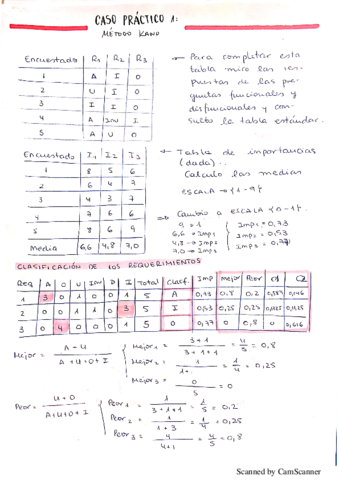 CASO PRÁCTICO 1:
MÉTODO KANO
Encuestado R1 R2 R3
1 A I O
2 U I O
3 I I O
4 A INV I
5 A U O
→ Para completar esta
tabla miro las res-
puestas de las pre-
guntas funcionales y
disfuncionales y con-
sulto la tabla estándar.
Encuestado I1 I2 I3
1 8 5 6
2 6 4 7
3 4 3 7
4 7 6 6
5 8 6 9
Media 6,6 4,8 7,0
→ Tabla de importancias
(dada).
Calculo las medias
ESCALA → {1-9}
⇒ Cambio a ESCALA {0-1}
6,6 → Imp1
4,8 → Imp2
7,0 → Imp3
Imp1 = 0,73
Imp2 = 0,53
Imp3 = 0,77
CLASIFICACIÓN DE LOS REQUERIMIENTOS
Req A O U Inv D I Total Clasf. Imp Mejor Peor C1 C2
1 3 0 1 0 0 1 5 A 0,73 0,8 0,2
2 0 0 1 1 0 3 5 I 0,53 0,25 0,25
3 0 4 0 0 0 1 5 O 0,77 0 0,8 0 0,616
Mejor = A + U / A + U + O + I
Mejor1 = 3+1 / 3+1+1 = 4/5 = 0,8
Mejor2 = = 1/4 = 0,25
Mejor3 = 0/5 = 0
Peor = U + O / A+U+O+I
Peor1 = 1 / 3+1+1 = 1/5 = 0,2
Peor2 = 1 / 1+3 = 1/4 = 0,25
Peor3 = 4 / 4+1 = 4/5 = 0,8
Scanned by CamScanner